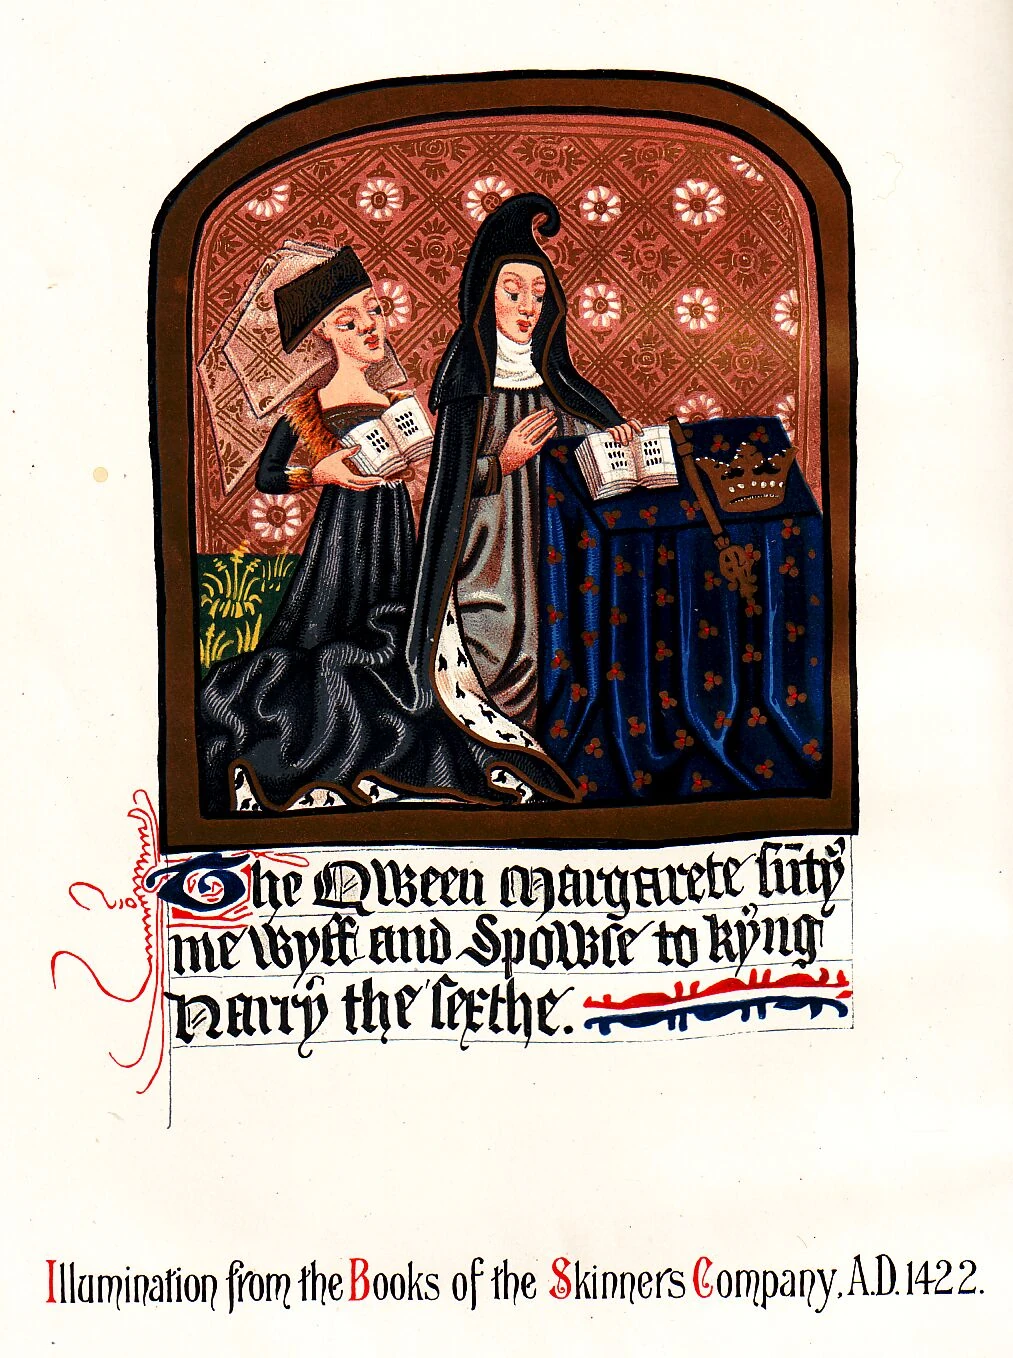 The Qween Margarete sūtÿ
me wyff and Spowse to kÿng
Harrÿ the sexthe.
Illumination from the Books of the Skinners Company, A.D. 1422.